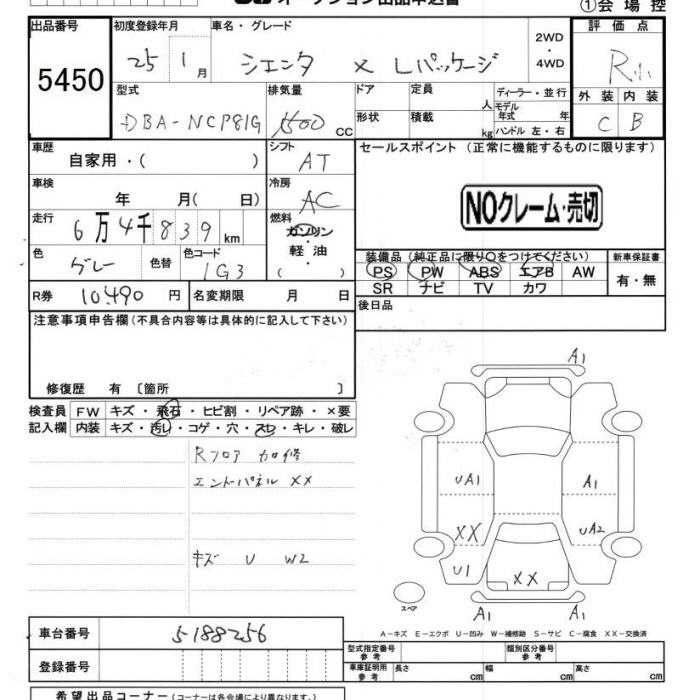 オークション出品申込書 ①会場控
出品番号 初度登録年月 車名・グレード 2WD・4WD 評価点
5450 25 1月 シエンタ X Lパッケージ R
型式 排気量 ドア 定員 人 ディーラー・並行 外装 内装
DBA-NCP81G 1500 cc 形状 積載 kg モデル年式 年 ハンドル 左・右 C B
車歴 自家用・( ) シフト AT セールスポイント (正常に機能するものに限ります)
車検 年 月( 日) 冷房 AC NOクレーム・売切
走行 6万4千839km 燃料 ガソリン・軽油 ( )
色 グレー 色替 色コード 1G3 装備品 (純正品に限り○をつけてください) 新車保証書
PS PW ABS エアB AW 有・無
SR ナビ TV カワ
R券 10,490円 名変期限 月 日 後日品
注意事項申告欄 (不具合内容等は具体的に記入して下さい)
修復歴 有 〔箇所 〕
検査員 FW キズ・飛石・ヒビ割・リペア跡・×要
記入欄 内装 キズ・汚れ・コゲ・穴・スレ・キレ・破レ
Rフロア カロ修
エンドパネル XX
キズ U W2
A1
UA1 A1
XX UA2
U1 XX
スペア A1 A1
A-キズ E-エクボ U-凹み W-補修跡 S-サビ C-腐食 XX-交換済
車台番号 5188256
登録番号
型式指定番号 参考 類別区分番号 参考
車庫証明用 参考 長さ cm 幅 cm 高さ cm
希望出品コーナー (コーナーは各会場により異なります。)